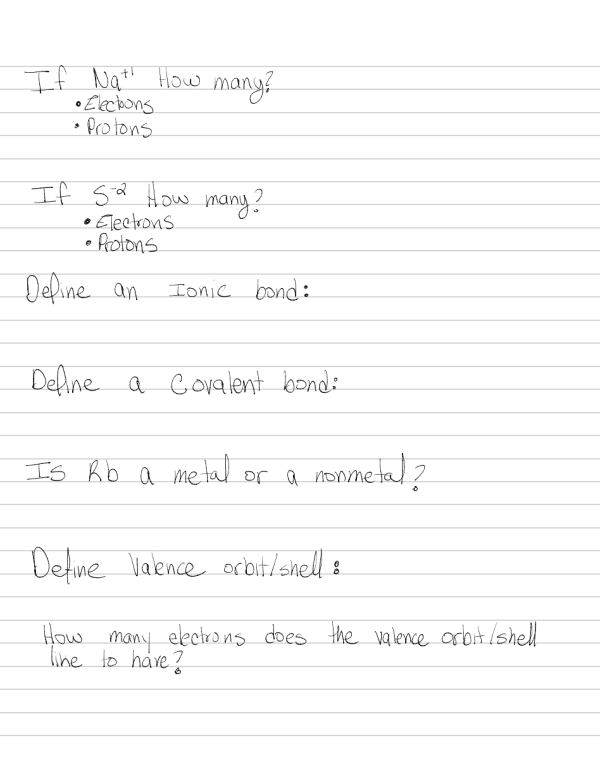 If Na⁺¹ How many?
• Electrons
• Protons
If S⁻² How many?
• Electrons
• Protons
Define an Ionic bond:
Define a Covalent bond:
Is Rb a metal or a nonmetal?
Define Valence orbit/shell:
How many electrons does the valence orbit/shell
like to have?